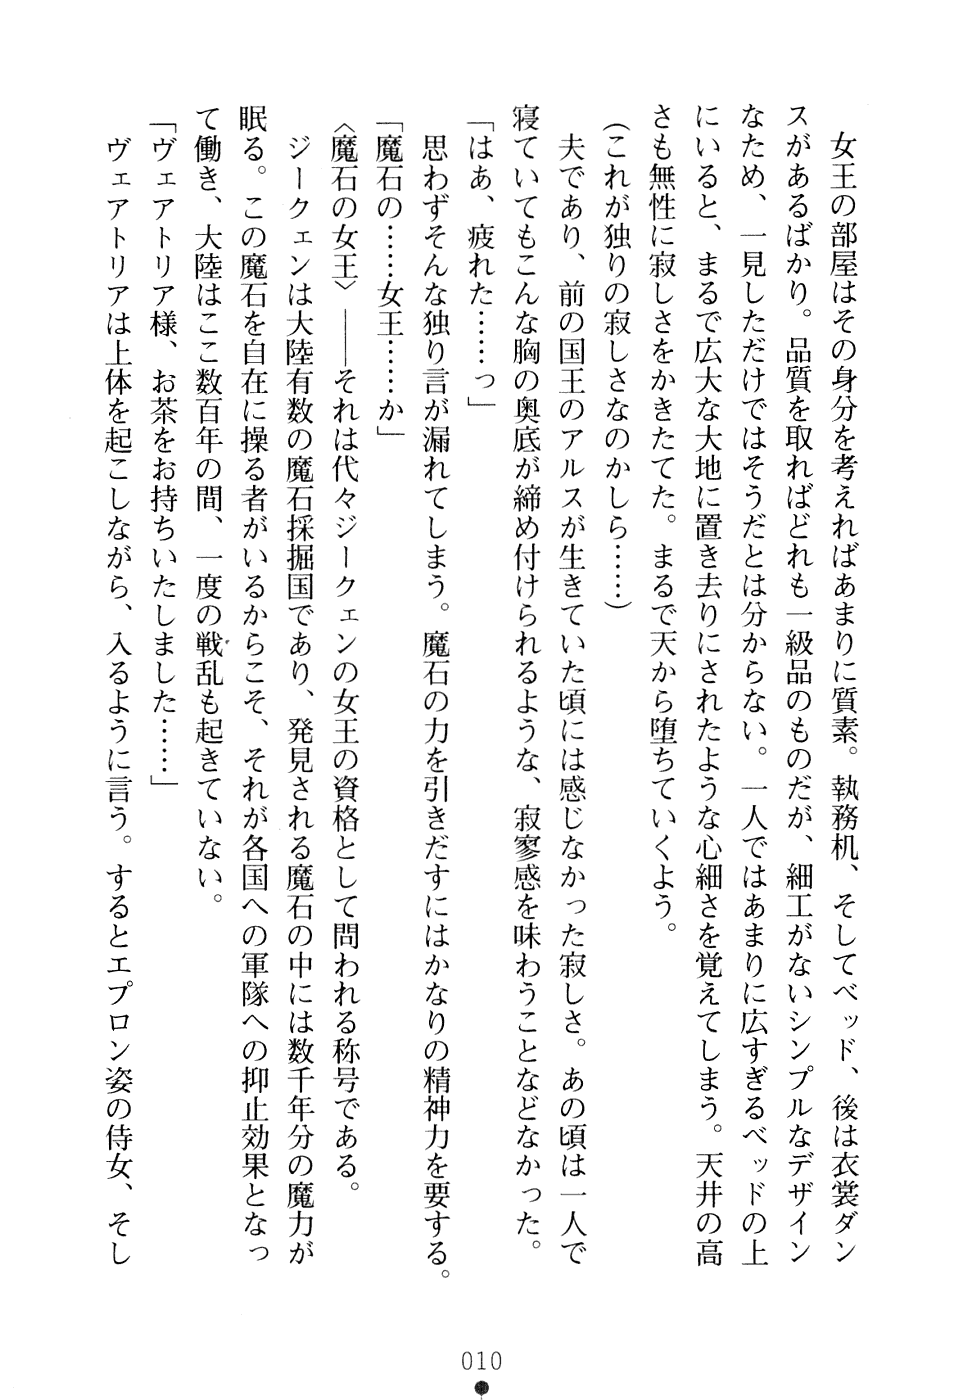 女王の部屋はその身分を考えればあまりに質素。執務机、そしてベッド、後は衣裳ダン
スがあるばかり。品質を取ればどれも一級品のものだが、細工がないシンプルなデザイン
なため、一見しただけではそうだとは分からない。一人ではあまりに広すぎるベッドの上
にいると、まるで広大な大地に置き去りにされたような心細さを覚えてしまう。天井の高
さも無性に寂しさをかきたてた。まるで天から堕ちていくよう。
(これが独りの寂しさなのかしら……)
夫であり、前の国王のアルスが生きていた頃には感じなかった寂しさ。あの頃は一人で
寝ていてもこんな胸の奥底が締め付けられるような、寂寥感を味わうことなどなかった。
「はあ、疲れた……っ」
思わずそんな独り言が漏れてしまう。魔石の力を引きだすにはかなりの精神力を要する。
「魔石の……女王……か」
〈魔石の女王〉――それは代々ジークェンの女王の資格として問われる称号である。
ジークェンは大陸有数の魔石採掘国であり、発見される魔石の中には数千年分の魔力が
眠る。この魔石を自在に操る者がいるからこそ、それが各国への軍隊への抑止効果となっ
て働き、大陸はここ数百年の間、一度の戦乱も起きていない。
「ヴェアトリア様、お茶をお持ちいたしました……」
ヴェアトリアは上体を起こしながら、入るように言う。するとエプロン姿の侍女、そし
010